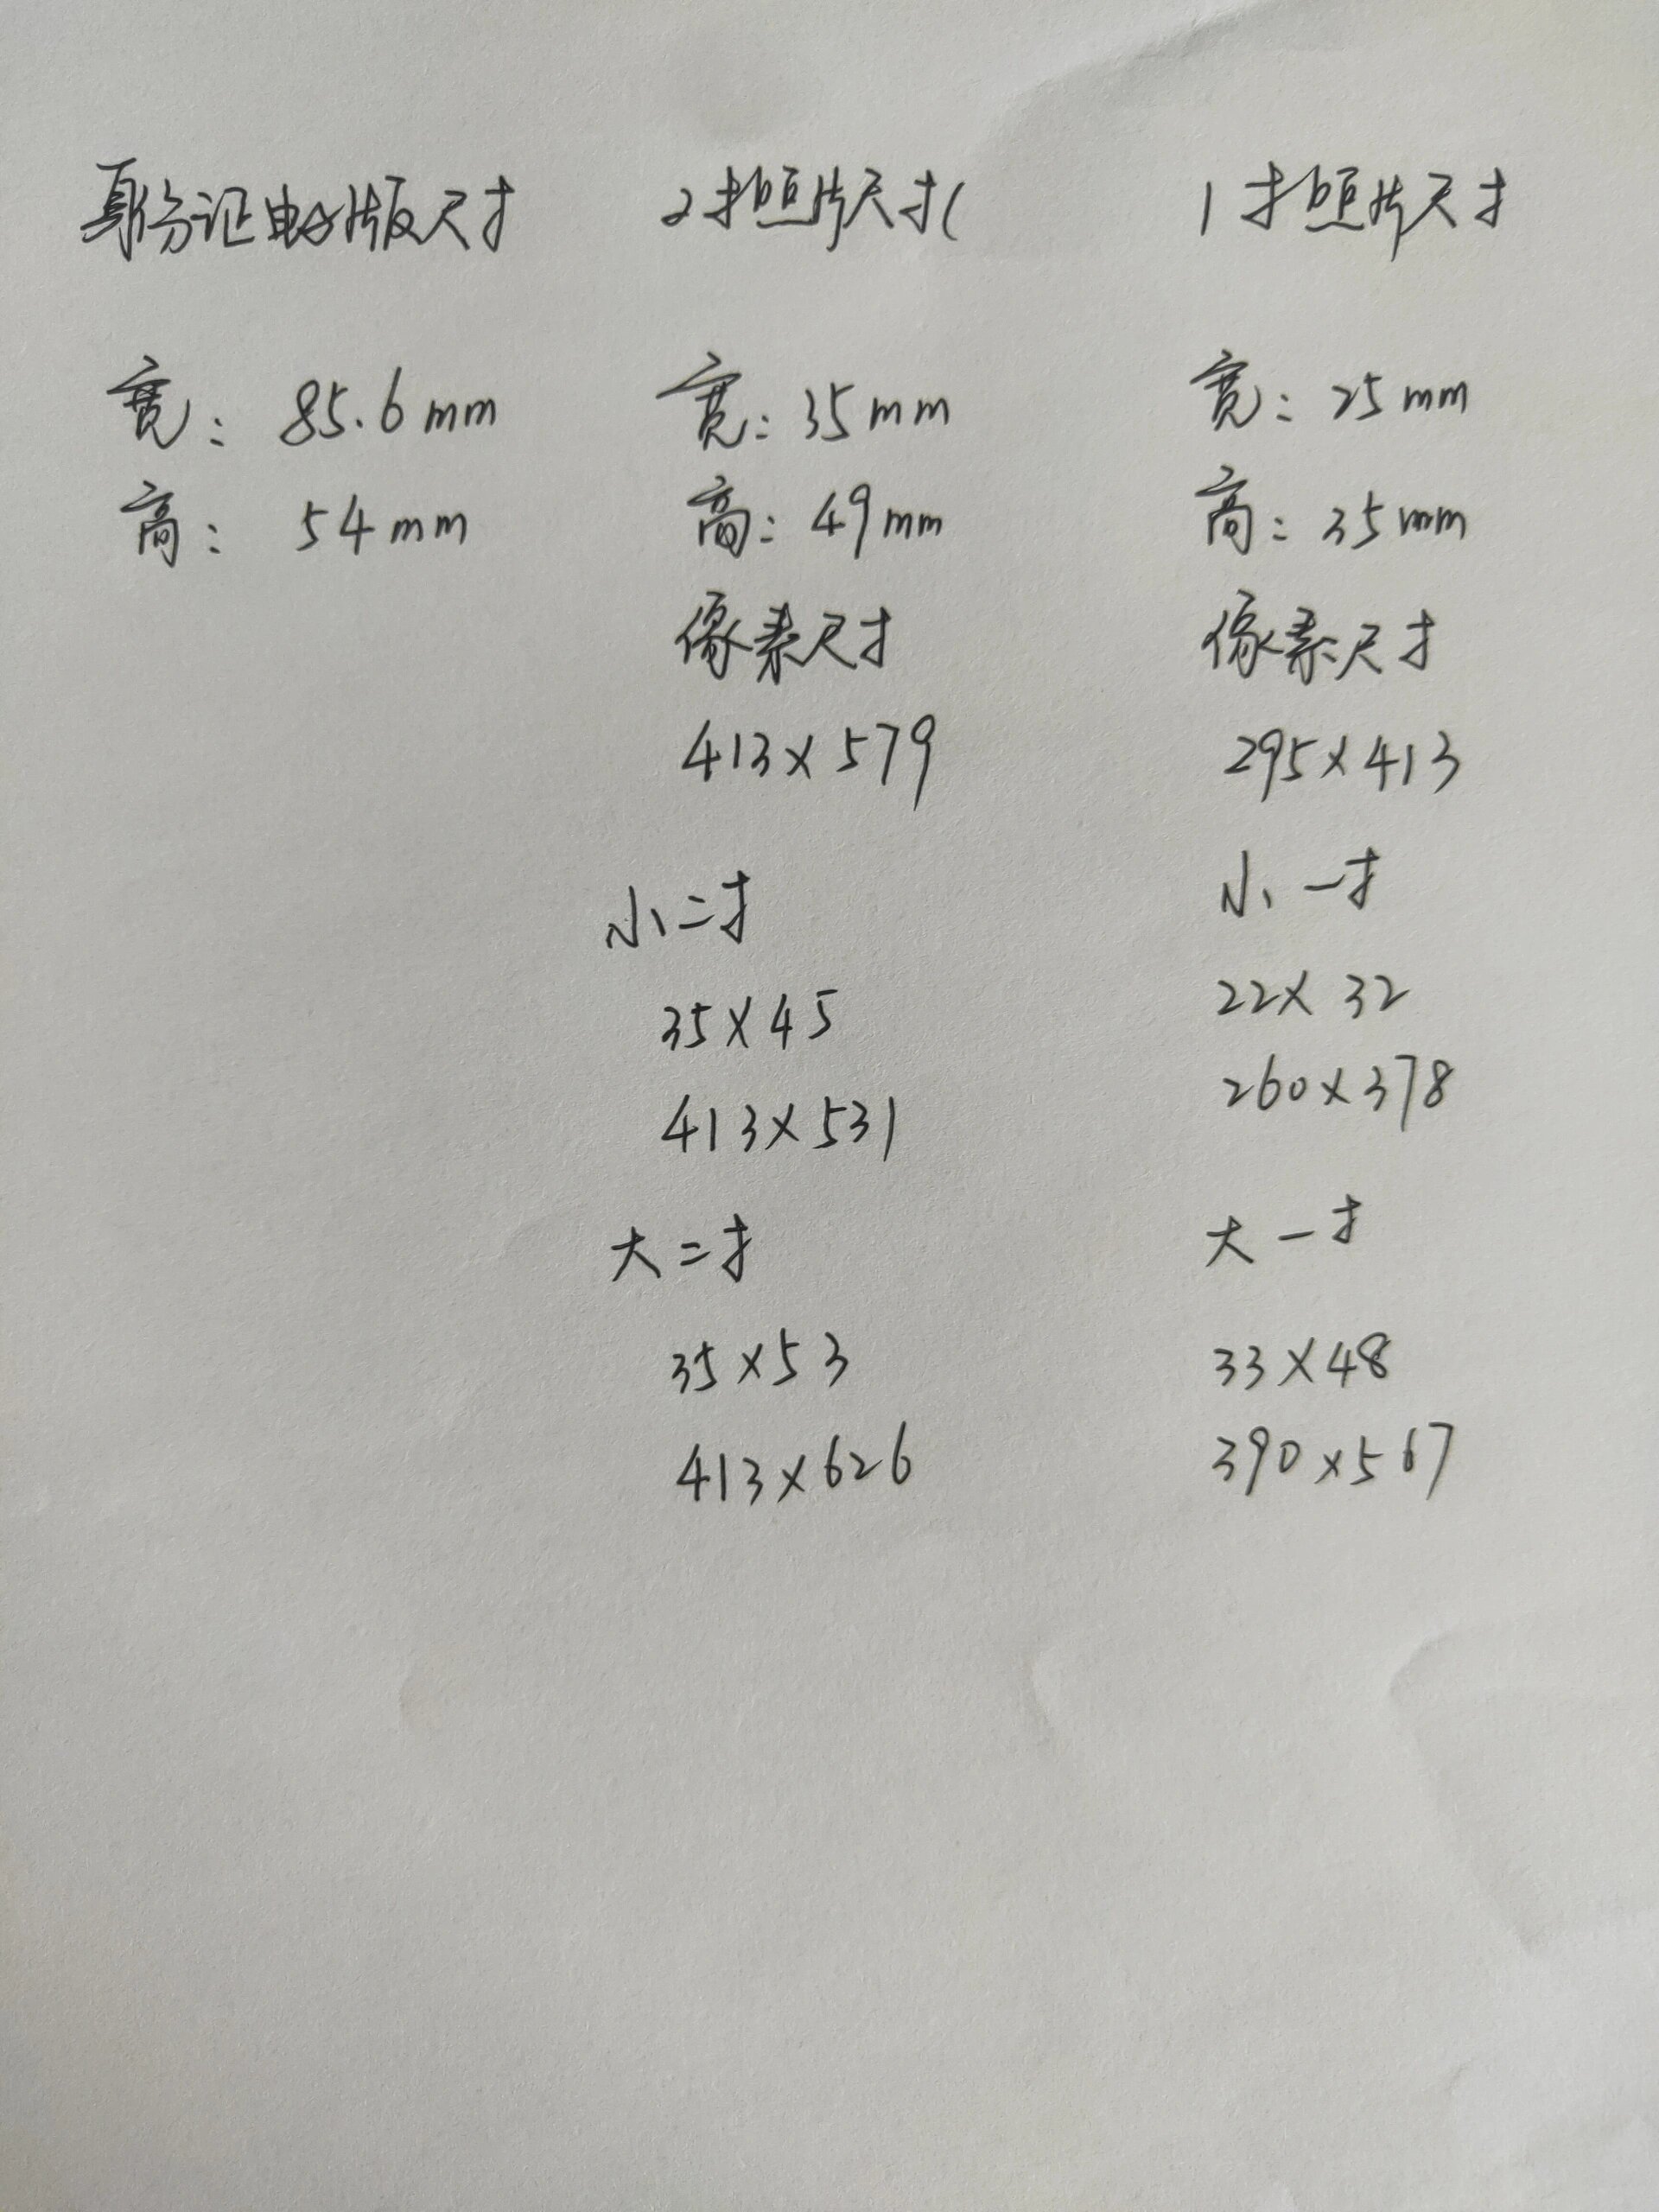 身份证电子版尺寸
宽：85.6mm
高：54mm
2寸照片尺寸(
宽：35mm
高：49mm
像素尺寸
413×579
小二寸
35×45
413×531
大二寸
35×53
413×626
1寸照片尺寸
宽：25mm
高：35mm
像素尺寸
295×413
小一寸
22×32
260×378
大一寸
33×48
390×567